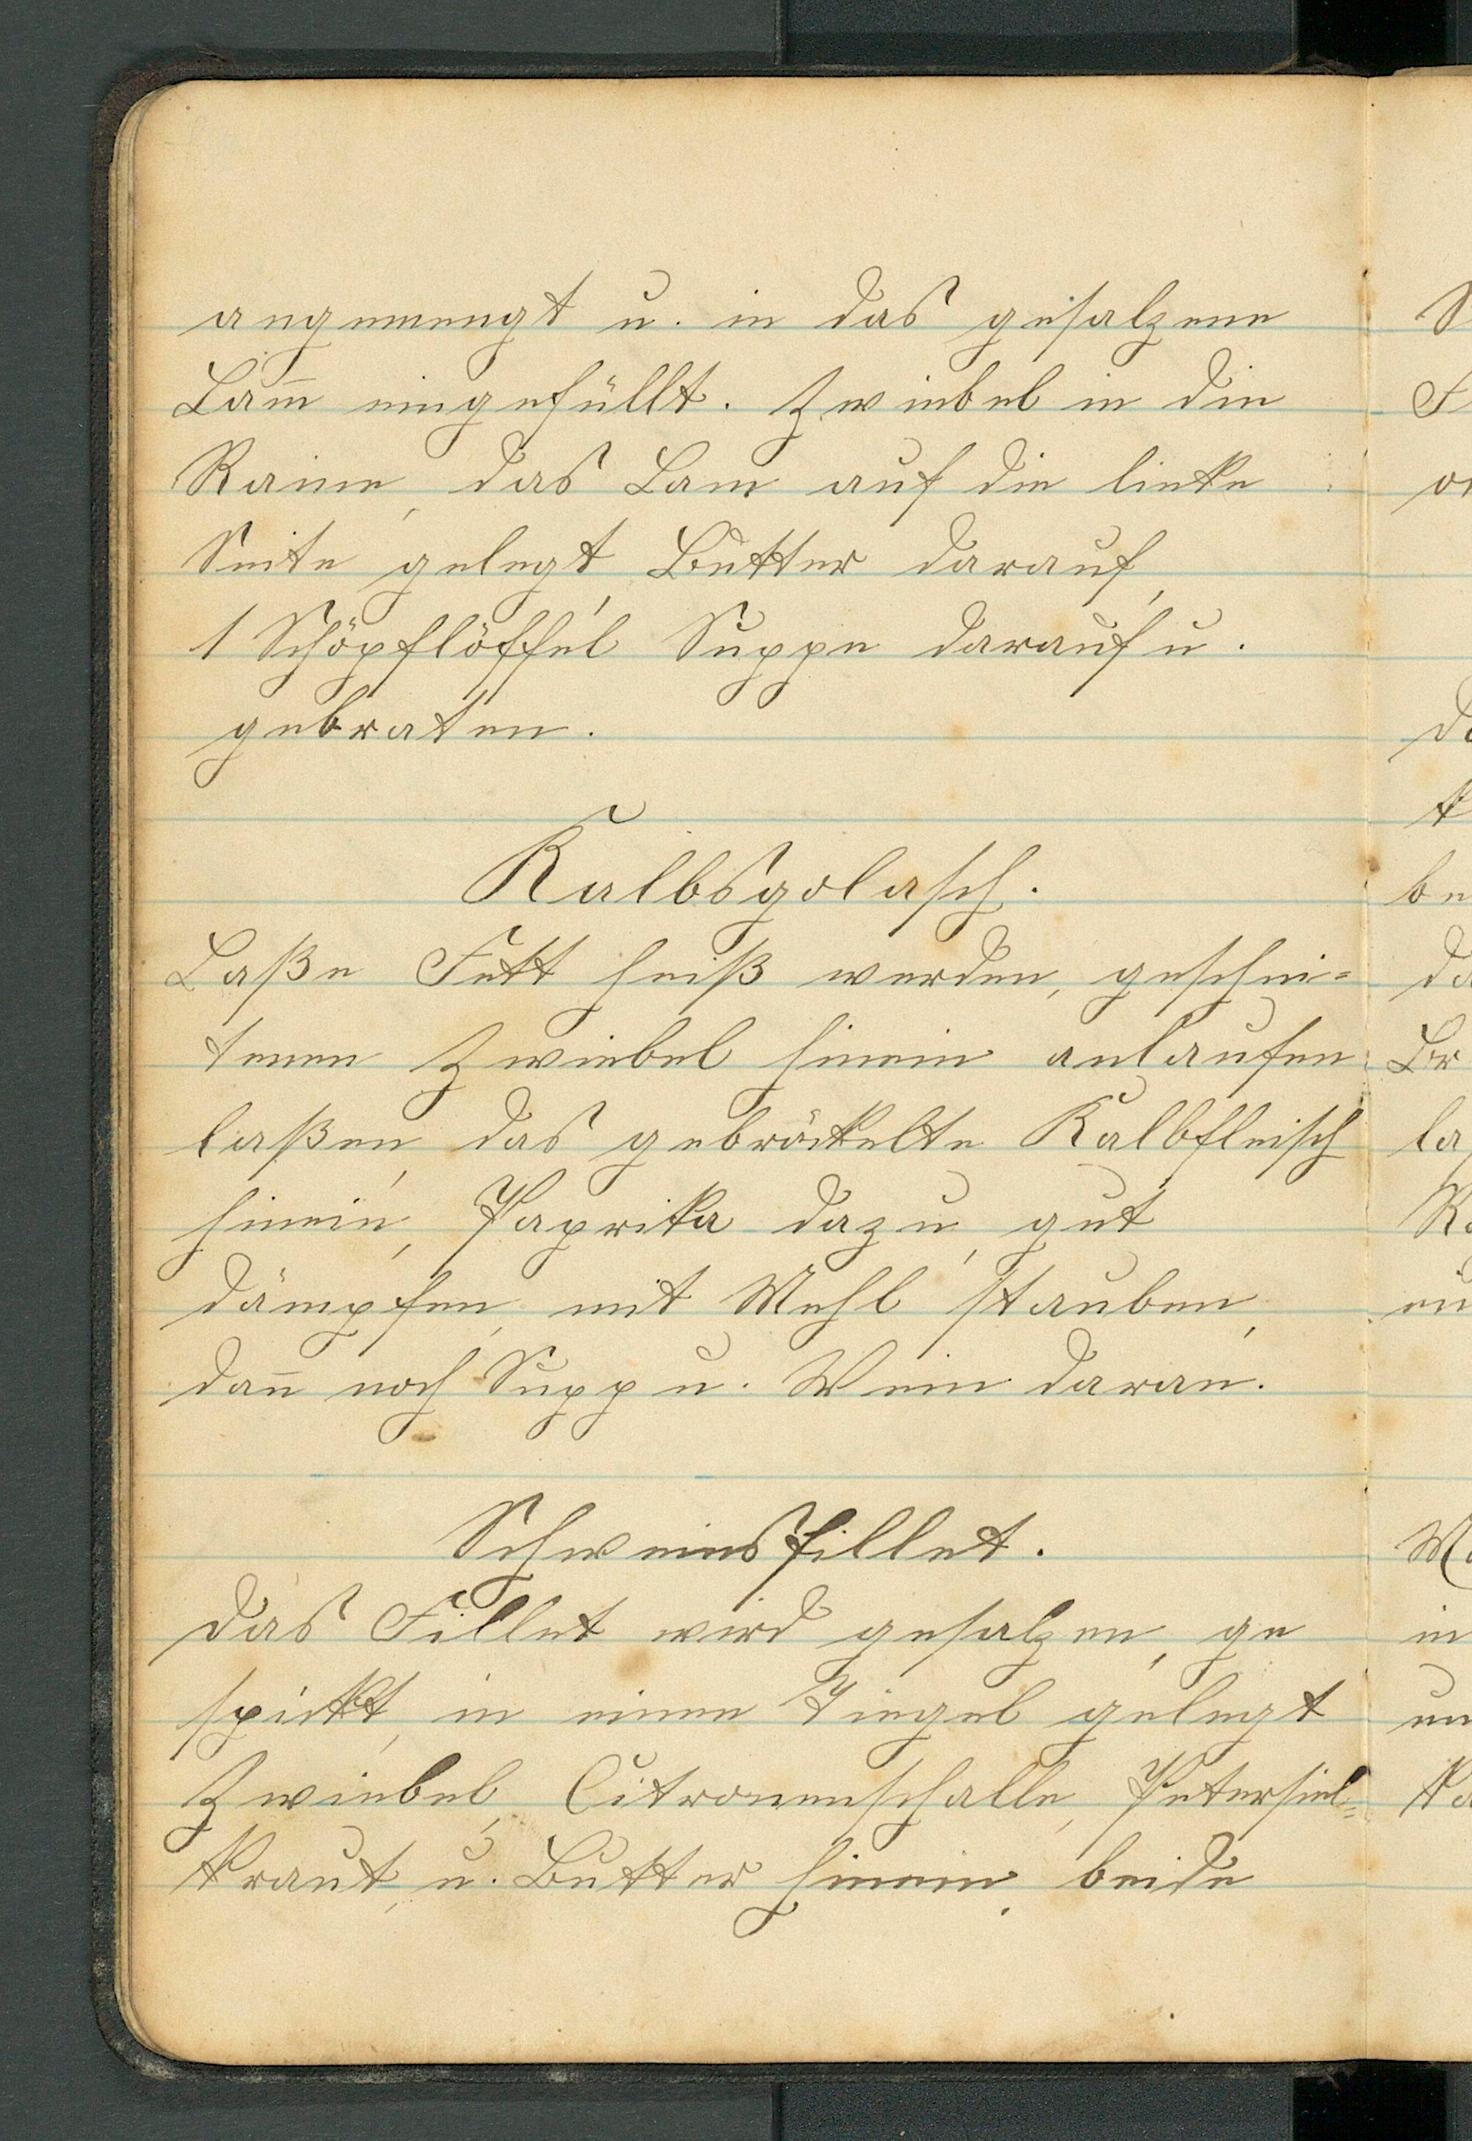 angemengt u. in das gesalzene
Lam̅ eingefüllt. Zwiebel in die
Raine, das Lam auf die linke
Seite gelegt, Butter darauf,
1 Schöpflöffel Suppe darauf u.
gebraten.
Kalbsgolasch.
Laße Fett heiß werden, geschni=
tenen Zwiebel hinein anlaufen
laßen, das gebröckelte Kalbfleisch
hinein, Paprika dazu, gut
dämpfen, mit Mehl stauben,
dan̅ noch Supp u. Wein daran.
Schweinsfillet.
Das Fillet wird gesalzen, ge
spickt, in einen Tiegel gelegt
Zwiebel, Citronenschalle, Petersiel=
kraut, u. Butter hinein, beide